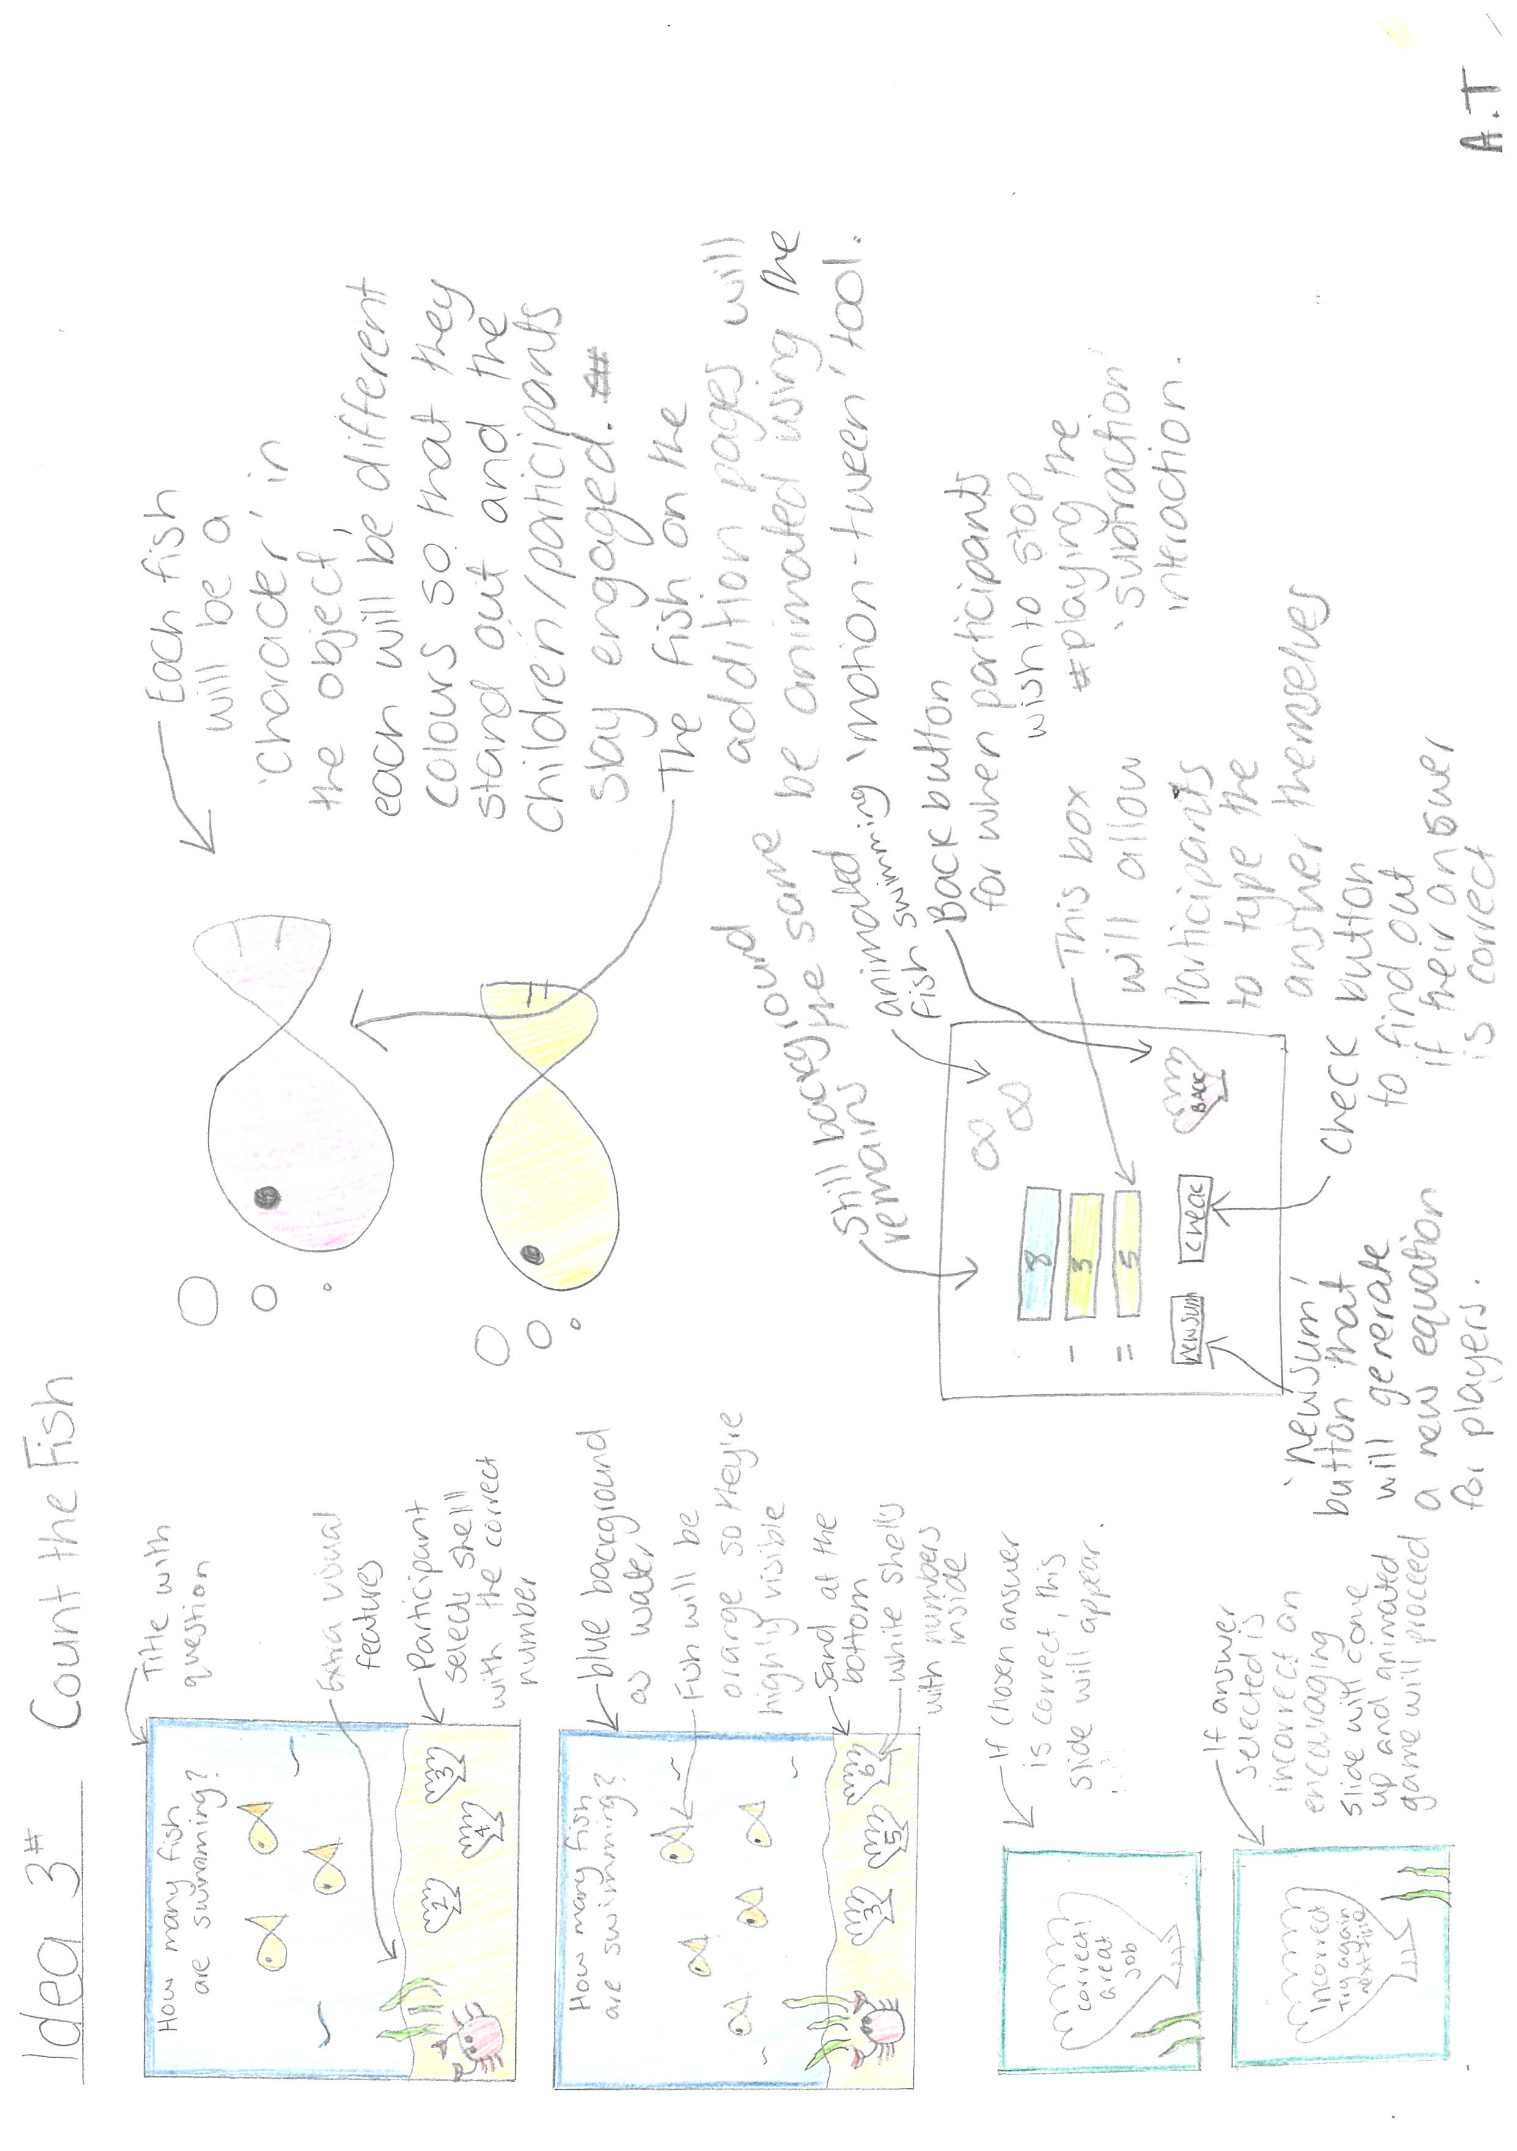 Idea 3# Count the Fish
How many fish
are swimming?
2
4
3
Title with
question
Extra visual
features
Participant
selects shell
with the correct
number
How many fish
are swimming?
3
5
9
blue background
as water
Fish will be
orange so they're
highly visible
Sand at the
bottom
white shells
with numbers
inside
correct!
Great
job
If chosen answer
is correct, this
slide will appear.
Incorrect
Try again
next time
If answer
selected is
incorrect an
encouraging
slide will come
up and animated
game will proceed
Each fish
will be a
'character' in
the object,
each will be different
colours so that they
stand out and the
children/participants
stay engaged.
The fish on the
addition pages will
be animated using the
'motion-tween' tool.
Still background
remains the same
animated
fish swimming
Back button
for when participants
wish to stop
playing the
'subtraction'
interaction.
8
- 3
= 5
newsum
check
BACK
This box
will allow
Participants
to type the
answer themselves
Check button
to find out
if their answer
is correct
'newsum'
button that
will generate
a new equation
for players.
A.T